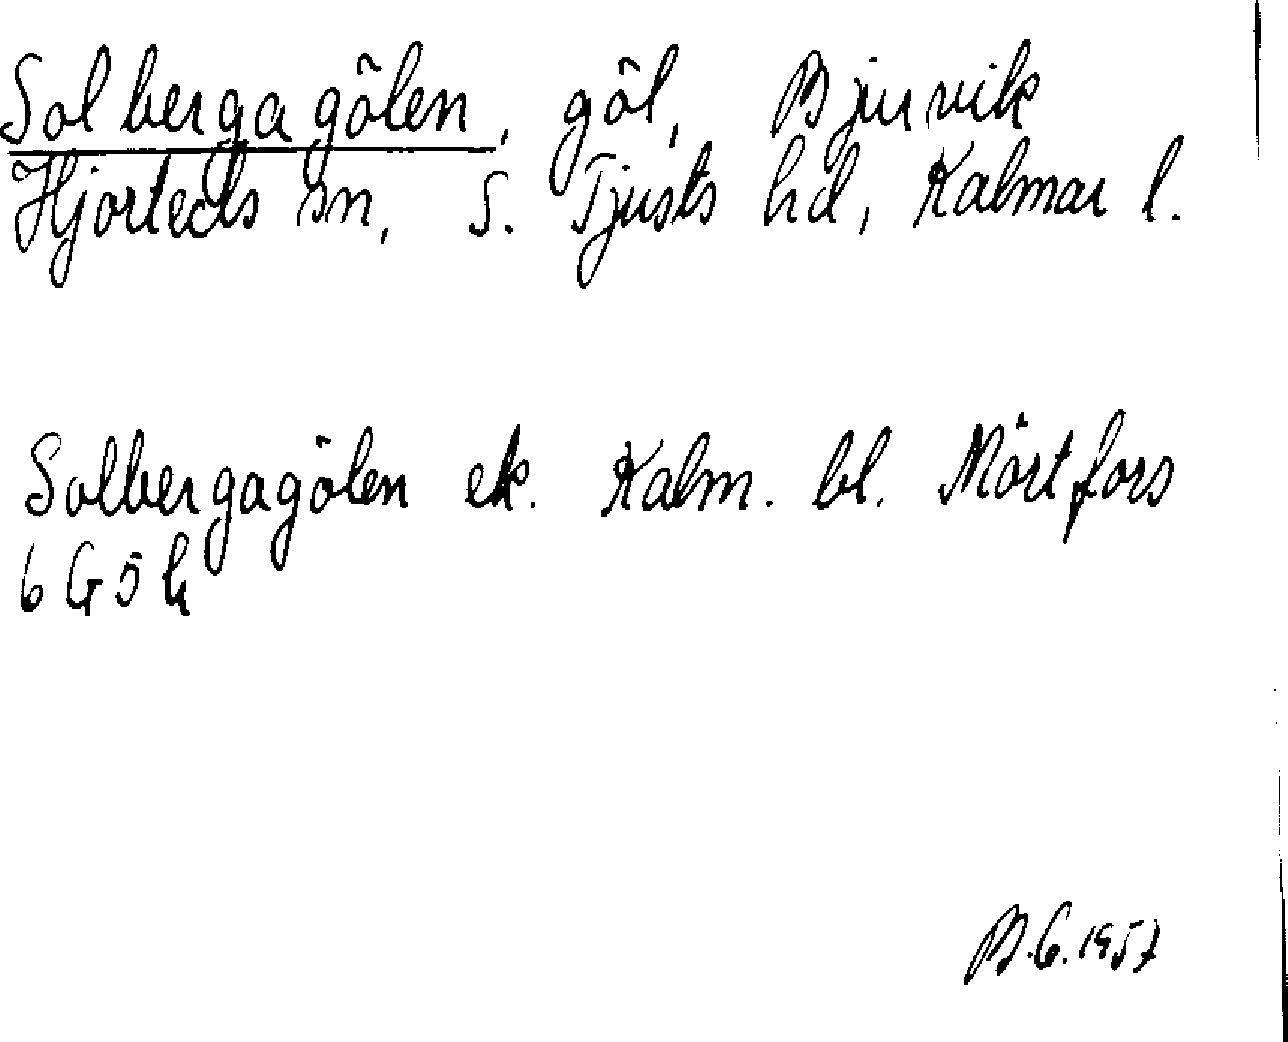 Solbergagölen, göl, Bjurvik
Hjorteds sn, S. Tjusts hd, Kalmar l.
Solbergagölen ek. Kalm. bl. Mörtfors
6 G 5 h
B.G. 1957